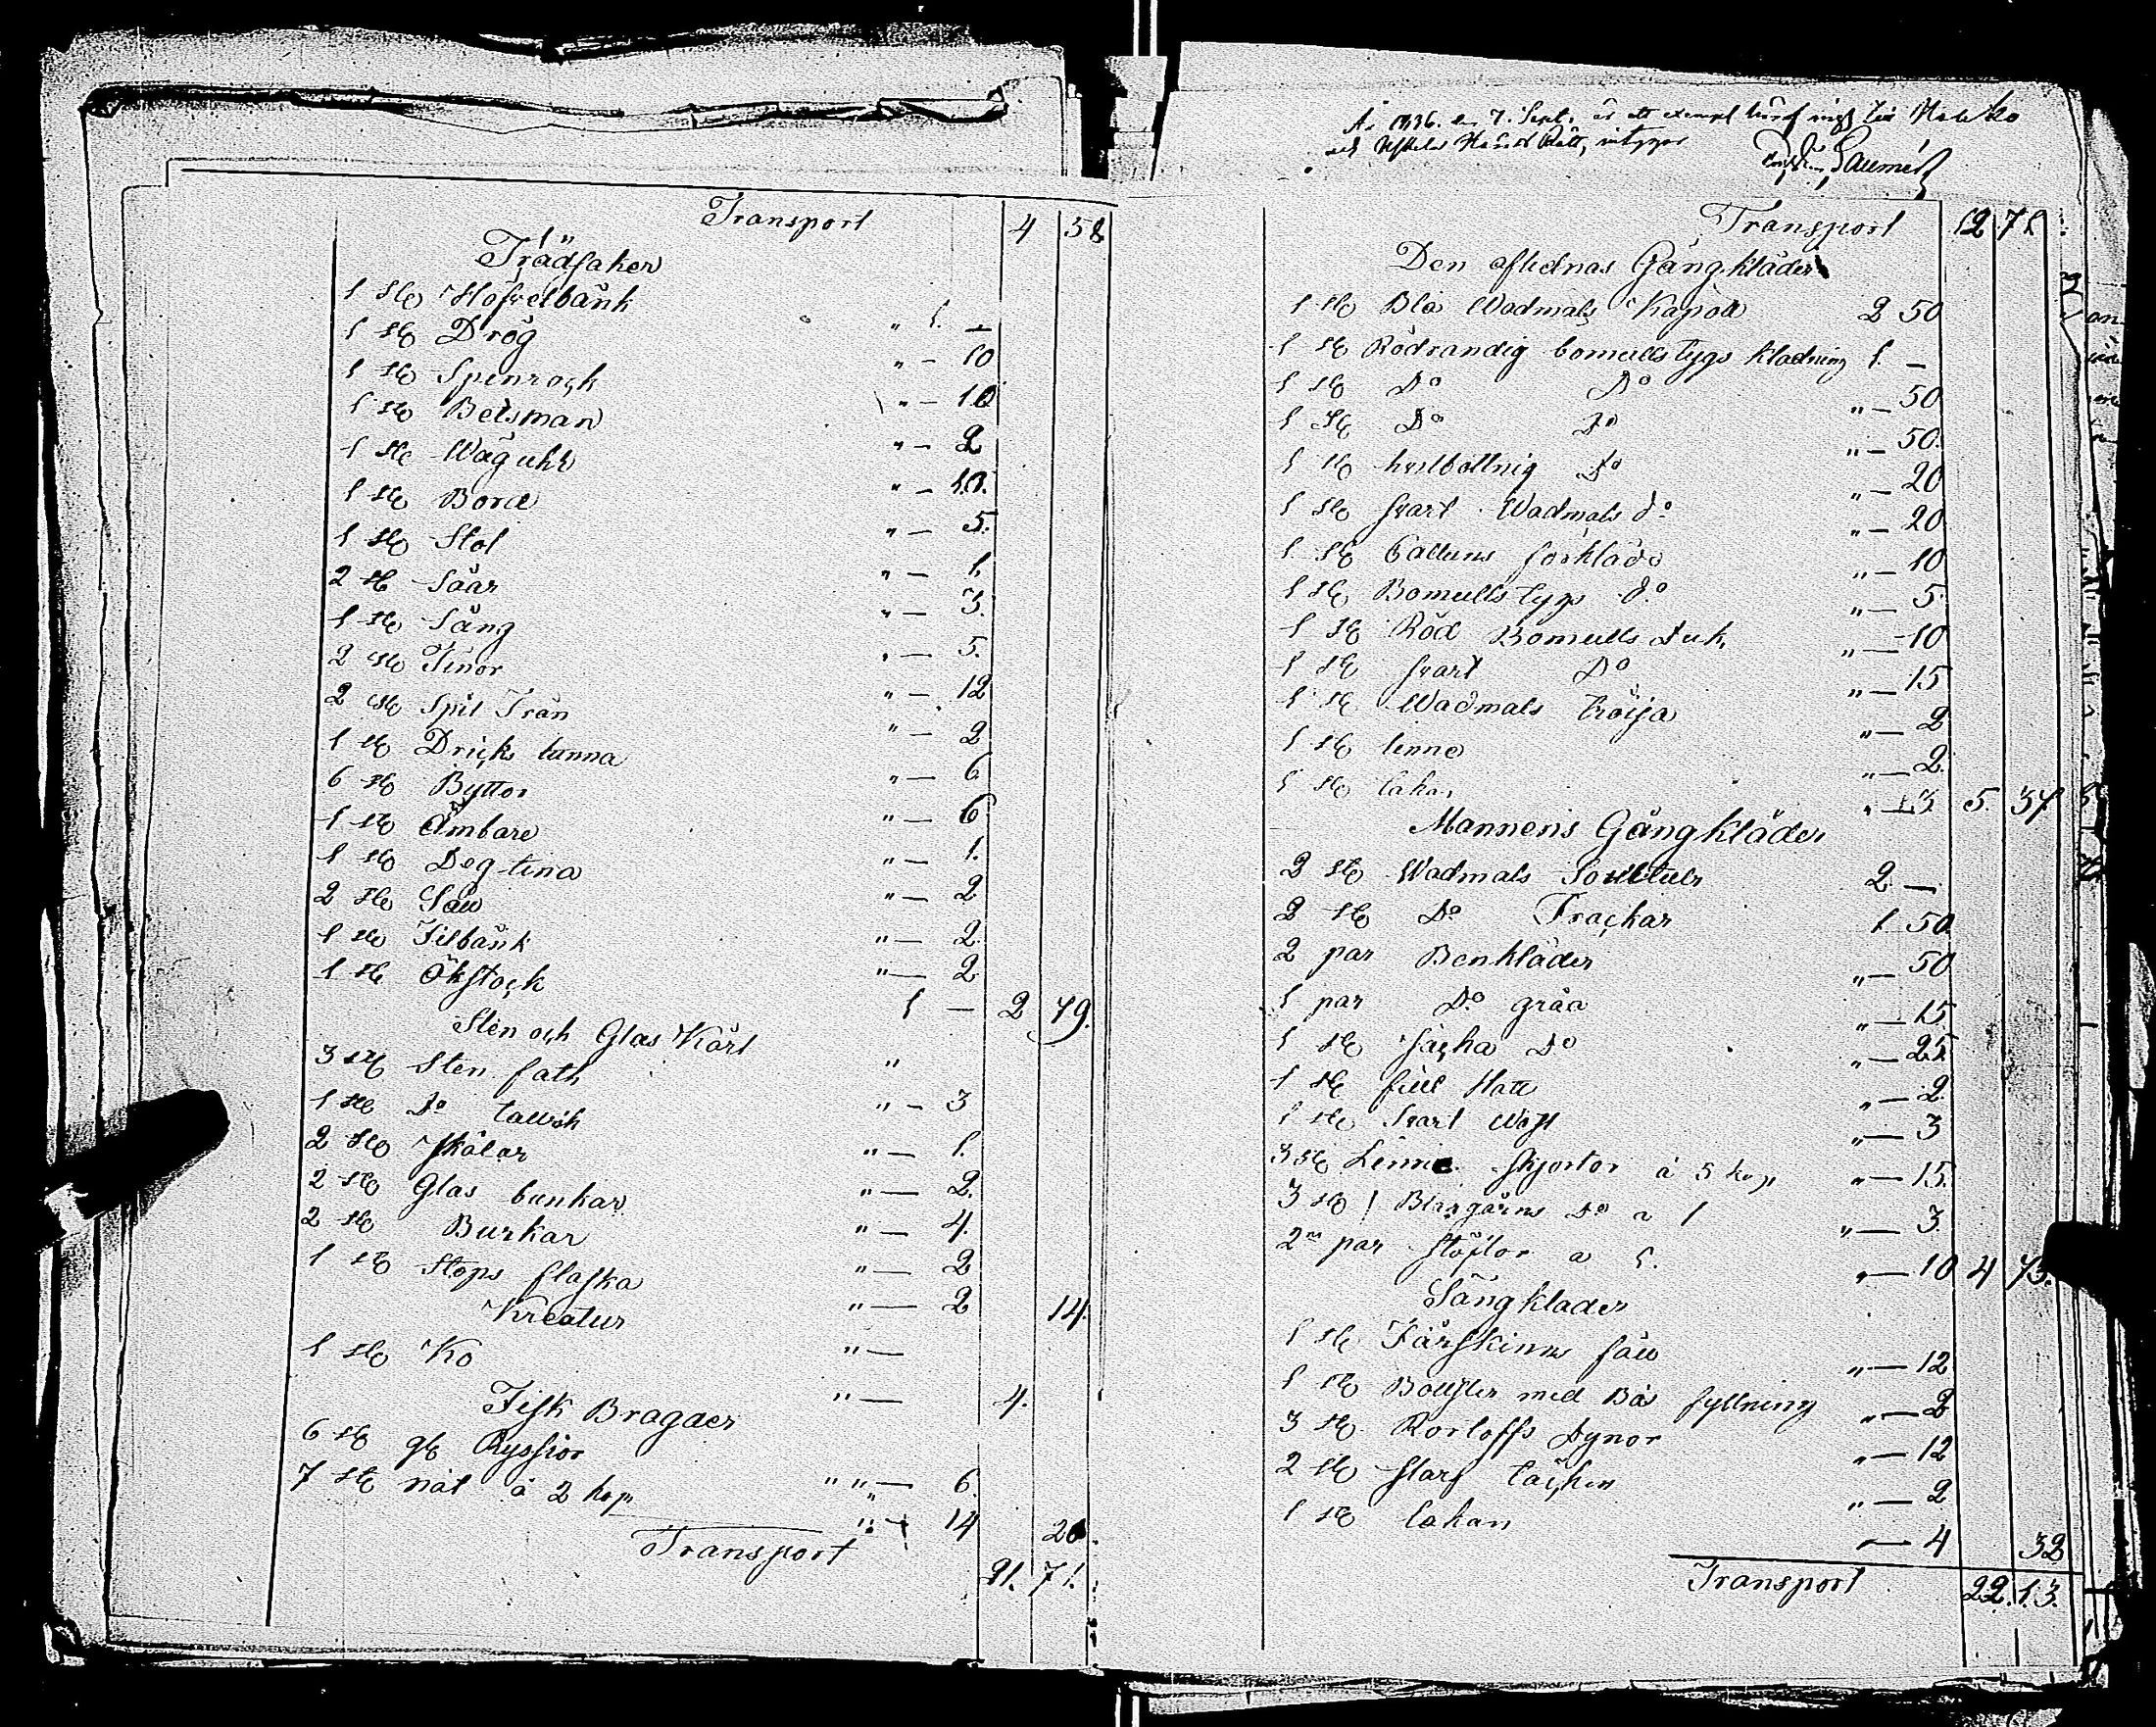 Transport 4 58
Trädsaker
1 st Höfvelbänk " 1. —
1 st Drög " — 10
1 st Spinrock " — 10
1 st Betsman " — 2
1 st Wäguhr " — 10.
1 st Bord " — 5.
1 st Stol " — 1.
2 st Såar " — 3.
1 st Säng " — 5.
2 st Tinor " — 12
2 st Spil Trän " — 2
1 st Dricks tunna " — 6
6 st Byttor " — 6
1 st Ämbare " — 1.
1 st Deg tina " — 2
2 st Såll " — 2.
1 st Filbänk " — 2
1 st Ökstock 1 — 2 79.
Sten och Glas Kärl
3 st Sten fath " — 3
1 st Do talrik " — 1.
2 st skålar " — 2.
2 st Glas bunkar " — 4.
2 st Burkar " — 2
1 st Stops flaska " — 2 14.
Kreatur
1 st Ko " — 4.
Fisk Bragder
6 st gl Ryssior " " — 6.
7 st nät à 2 kop " — 14 20.
Transport 71.
År 1896. den 7. Sept. är ett exempl
och Häradsrätt, intygar
Transport 12 71
Den aflednas Gångkläder
1 st Blå Wadmals Kapott 2 50
1 st Rödrandig bomullstygs kladning 1. —
1 st Do Do " — 50
1 st Do Do " — 50.
1 st hvilbottnig Do " — 20
1 st svart Wadmals do " — 20
1 st Cattuns förkläde " — 10
1 st Bomullstygs do " — 5
1 st Röd Bomulls Duk " — 10
1 st svart Do " — 15
1 st Wadmals tröija " — 2
1 st linne " — 2.
1 st lakan " — 3 5. 37
Mannens Gångkläder
2 st Wadmals 2 —
2 st Do Frackar 1 50
2 par Benkläder " — 50
1 par Do gråa " — 15
1 st Jacka Do " — 25
1 st filt Hatt " — 2
1 st Svart Wäst " — 3
3 st Linne skjortor à 5 kop " — 15
3 st Blångarns Do a 1 " — 3
2 par stöflor a 5. " — 10 4 73.
Sängklader
1 st Fårskinns fäll " — 12
1 st Bollster med Bås fyllning " — 2
3 st Dynor " — 12
2 st slarf täcken " — 2
1 st lakan — 4 32
Transport 22. 13.